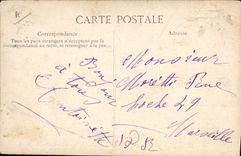 CARTE POSTALE
Correspondance
Adresse
Tous les pays étrangers n'acceptent pas la
correspondance au recto, se renseigner à la poste.
Bonjour
à tous
Antoinette
Monsieur
Moretti Rue
Hoche 49
Marseille